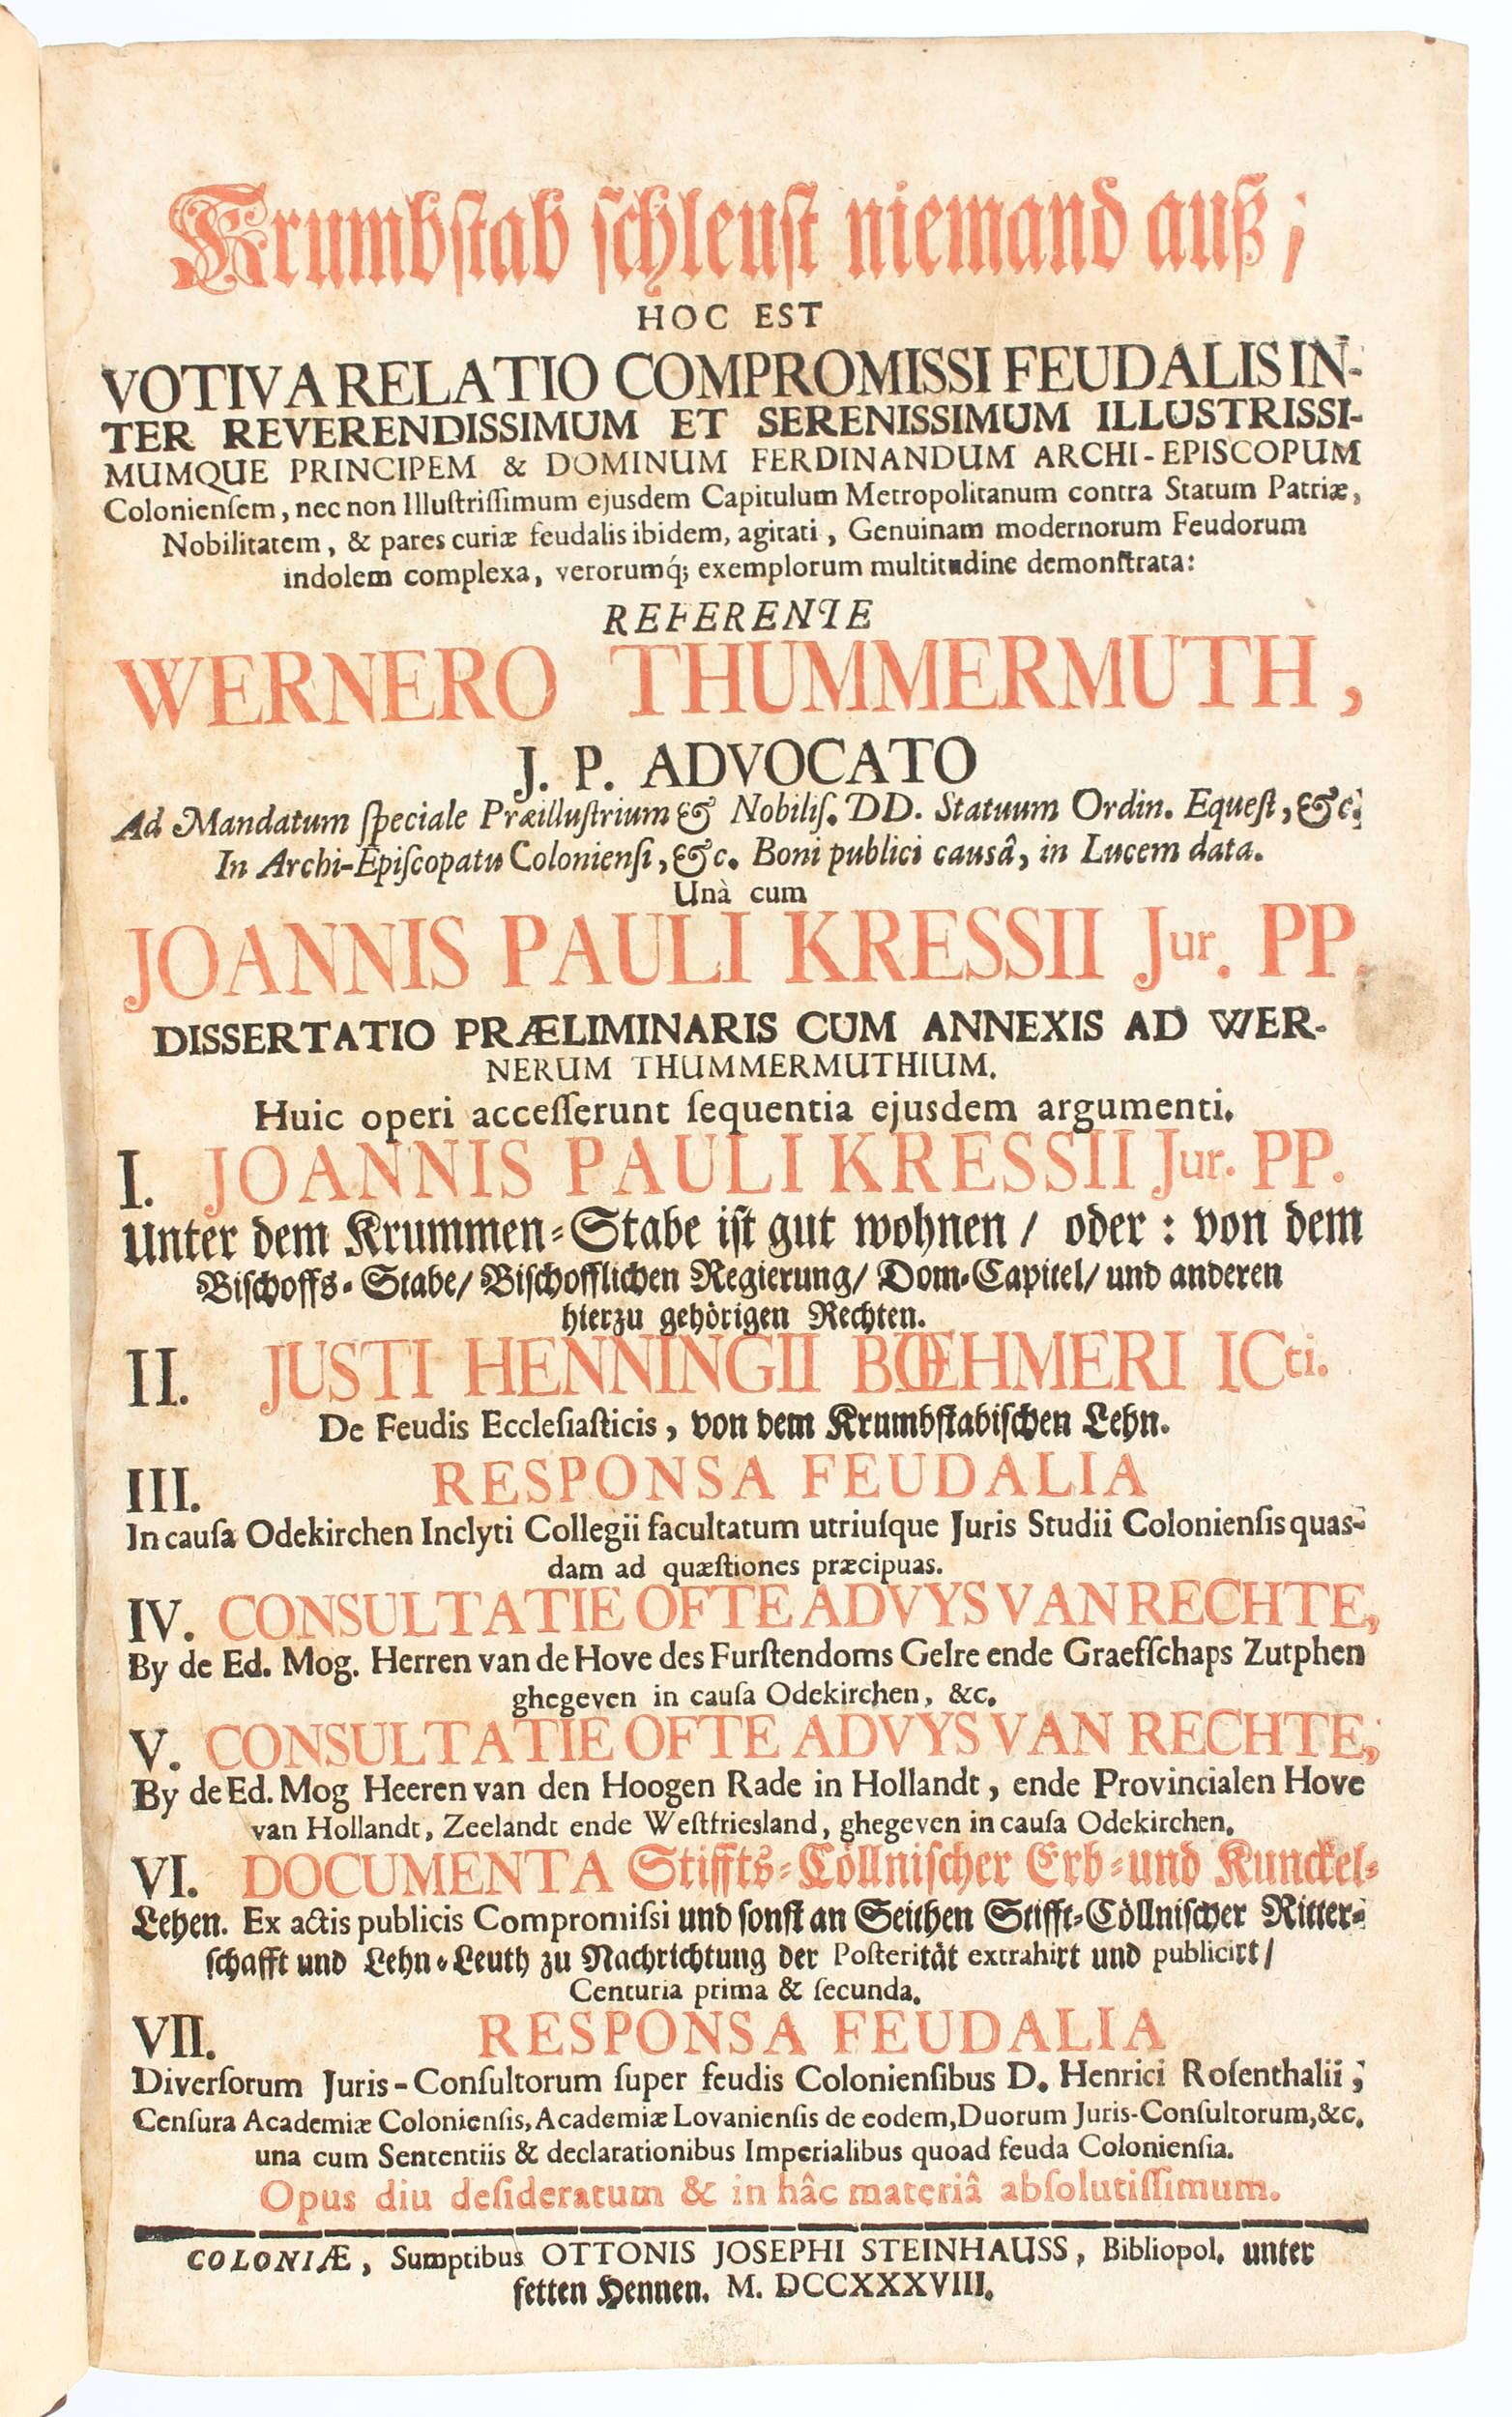 Krumbstab schleust niemand auß;
HOC EST
VOTIVA RELATIO COMPROMISSI FEUDALIS IN-
TER REVERENDISSIMUM ET SERENISSIMUM ILLUSTRISSI-
MUMQUE PRINCIPEM & DOMINUM FERDINANDUM ARCHI-EPISCOPUM
Colonienſem, nec non Illuſtriſſimum ejusdem Capitulum Metropolitanum contra Statum Patriæ,
Nobilitatem, & pares curiæ feudalis ibidem, agitati, Genuinam modernorum Feudorum
indolem complexa, verorumq́; exemplorum multitudine demonſtrata:
REFERENTE
WERNERO THUMMERMUTH,
J. P. ADVOCATO
Ad Mandatum ſpeciale Præilluſtrium & Nobiliſ. DD. Statuum Ordin. Equeſt, &c.
In Archi-Epiſcopatu Colonienſi, &c. Boni publici causâ, in Lucem data.
Unà cum
JOANNIS PAULI KRESSII Jur. PP.
DISSERTATIO PRÆLIMINARIS CUM ANNEXIS AD WER-
NERUM THUMMERMUTHIUM.
Huic operi acceſſerunt ſequentia ejusdem argumenti.
I. JOANNIS PAULI KRESSII Jur. PP.
Unter dem Krummen-Stabe iſt gut wohnen / oder : von dem
Biſchoffs-Stabe/ Biſchofflichen Regierung/ Dom-Capitel/ und anderen
hierzu gehörigen Rechten.
II. JUSTI HENNINGII BŒHMERI ICti.
De Feudis Eccleſiaſticis, von dem Krumbſtabiſchen Lehn.
III. RESPONSA FEUDALIA
In cauſa Odekirchen Inclyti Collegii facultatum utriuſque Juris Studii Colonienſis quas-
dam ad quæſtiones præcipuas.
IV. CONSULTATIE OFTE ADVYS VAN RECHTE,
By de Ed. Mog. Herren van de Hove des Furſtendoms Gelre ende Graefſchaps Zutphen
ghegeven in cauſa Odekirchen, &c.
V. CONSULTATIE OFTE ADVYS VAN RECHTE,
By de Ed. Mog Heeren van den Hoogen Rade in Hollandt, ende Provincialen Hove
van Hollandt, Zeelandt ende Weſtfriesland, ghegeven in cauſa Odekirchen.
VI. DOCUMENTA Stiffts-Cöllniſcher Erb-und Kunckel-
Lehen. Ex actis publicis Compromiſsi und ſonſt an Seithen Stifft-Cöllniſcher Ritter-
ſchafft und Lehn-Leuth zu Nachrichtung der Poſterität extrahirt und publicirt/
Centuria prima & ſecunda.
VII. RESPONSA FEUDALIA
Diverſorum Juris-Conſultorum ſuper feudis Colonienſibus D. Henrici Roſenthalii;
Cenſura Academiæ Colonienſis, Academiæ Lovanienſis de eodem, Duorum Juris-Conſultorum, &c.
una cum Sententiis & declarationibus Imperialibus quoad feuda Colonienſia.
Opus diu deſideratum & in hâc materiâ abſolutiſſimum.
COLONIÆ, Sumptibus OTTONIS JOSEPHI STEINHAUSS, Bibliopol. unter
fetten Hennen. M. DCCXXXVIII.